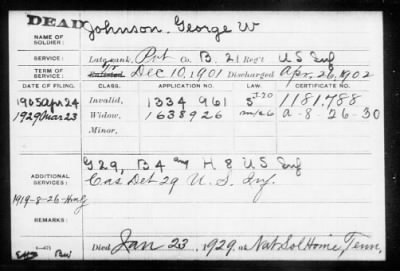 DEAD
Johnson, George W
NAME OF SOLDIER:
SERVICE: Late rank, Pvt Co. B, 21 Reg't U S Inf
TERM OF SERVICE: Enlisted Dec 10, 1901 Discharged Apr. 26, 1902
DATE OF FILING. CLASS. APPLICATION NO. LAW. CERTIFICATE NO.
1905 Apr 24 Invalid, 1334 961 1181,788
1929 Mar 23 Widow, 1638926 a-8-26-30
Minor,
G 29, B 4 H 8 U S Inf
ADDITIONAL SERVICES: Cas Det 29 U. S. Inf.
1919-8-26-
REMARKS:
Died Jan 23, 1929, at Nat Sol Home, Tenn,